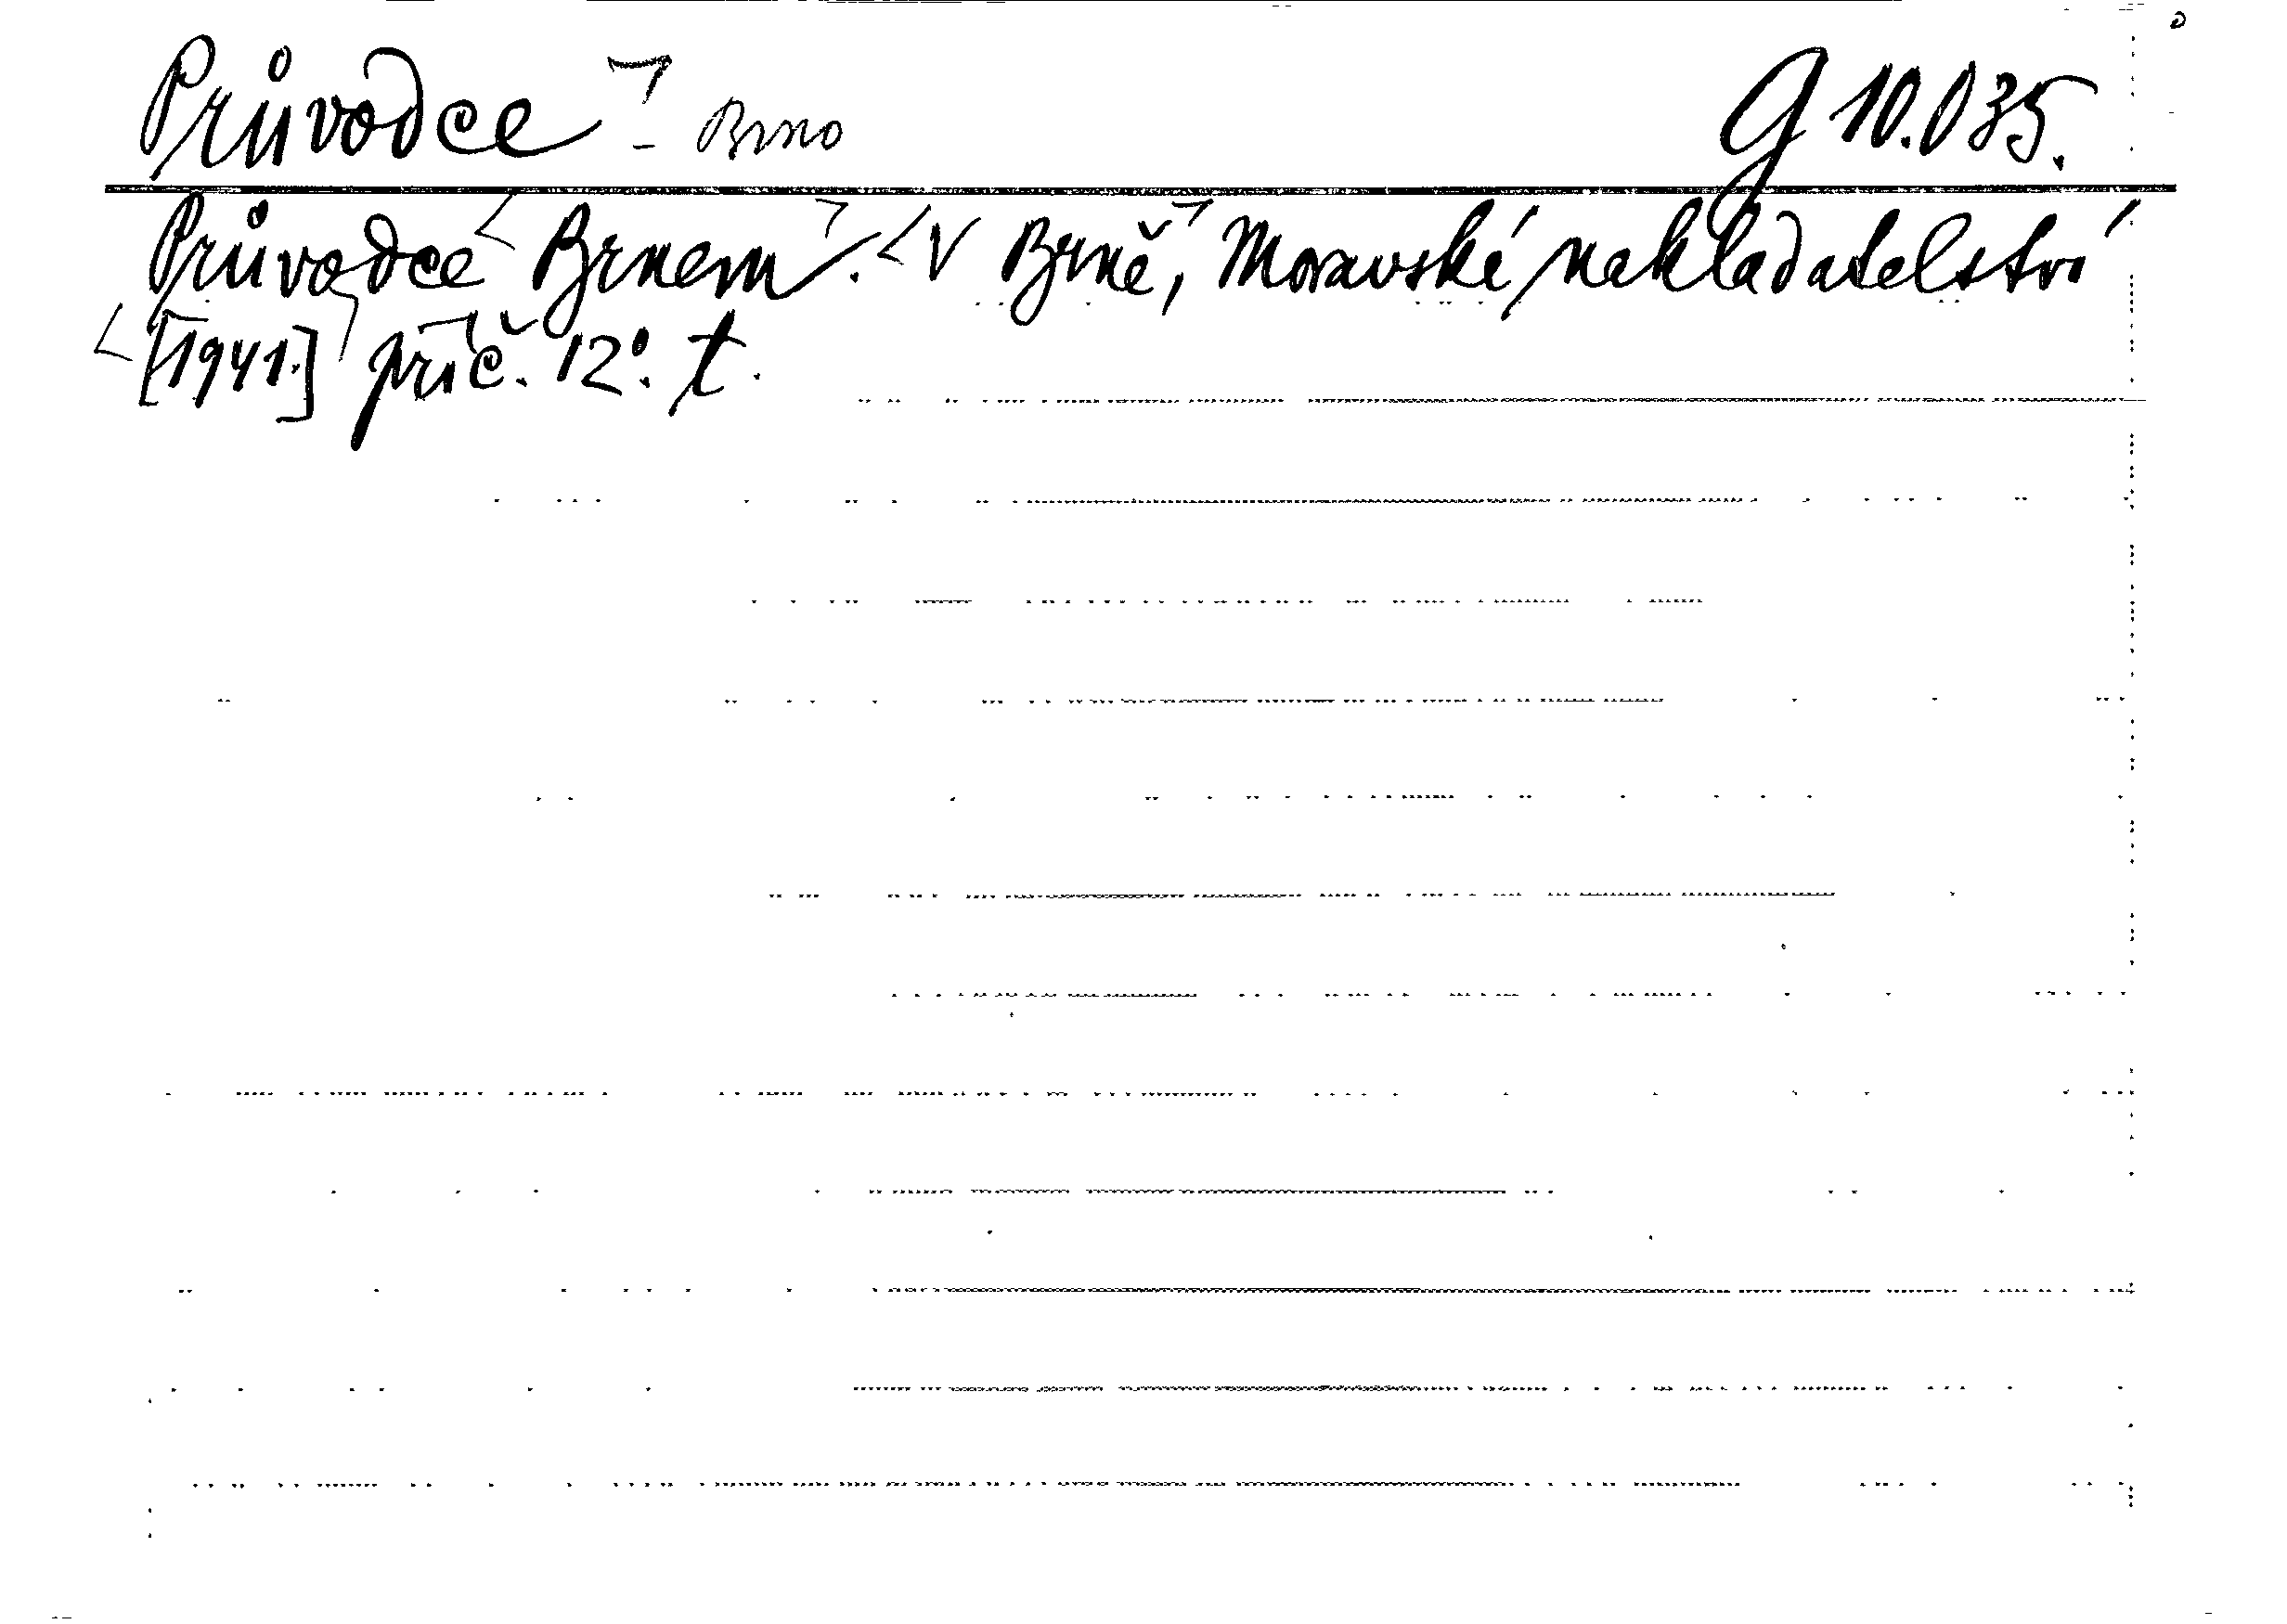 Průvodce - Brno G 10.035.
Průvodce Brnem. V Brně, Moravské nakladatelství
[1941.] příč. 12°. t.